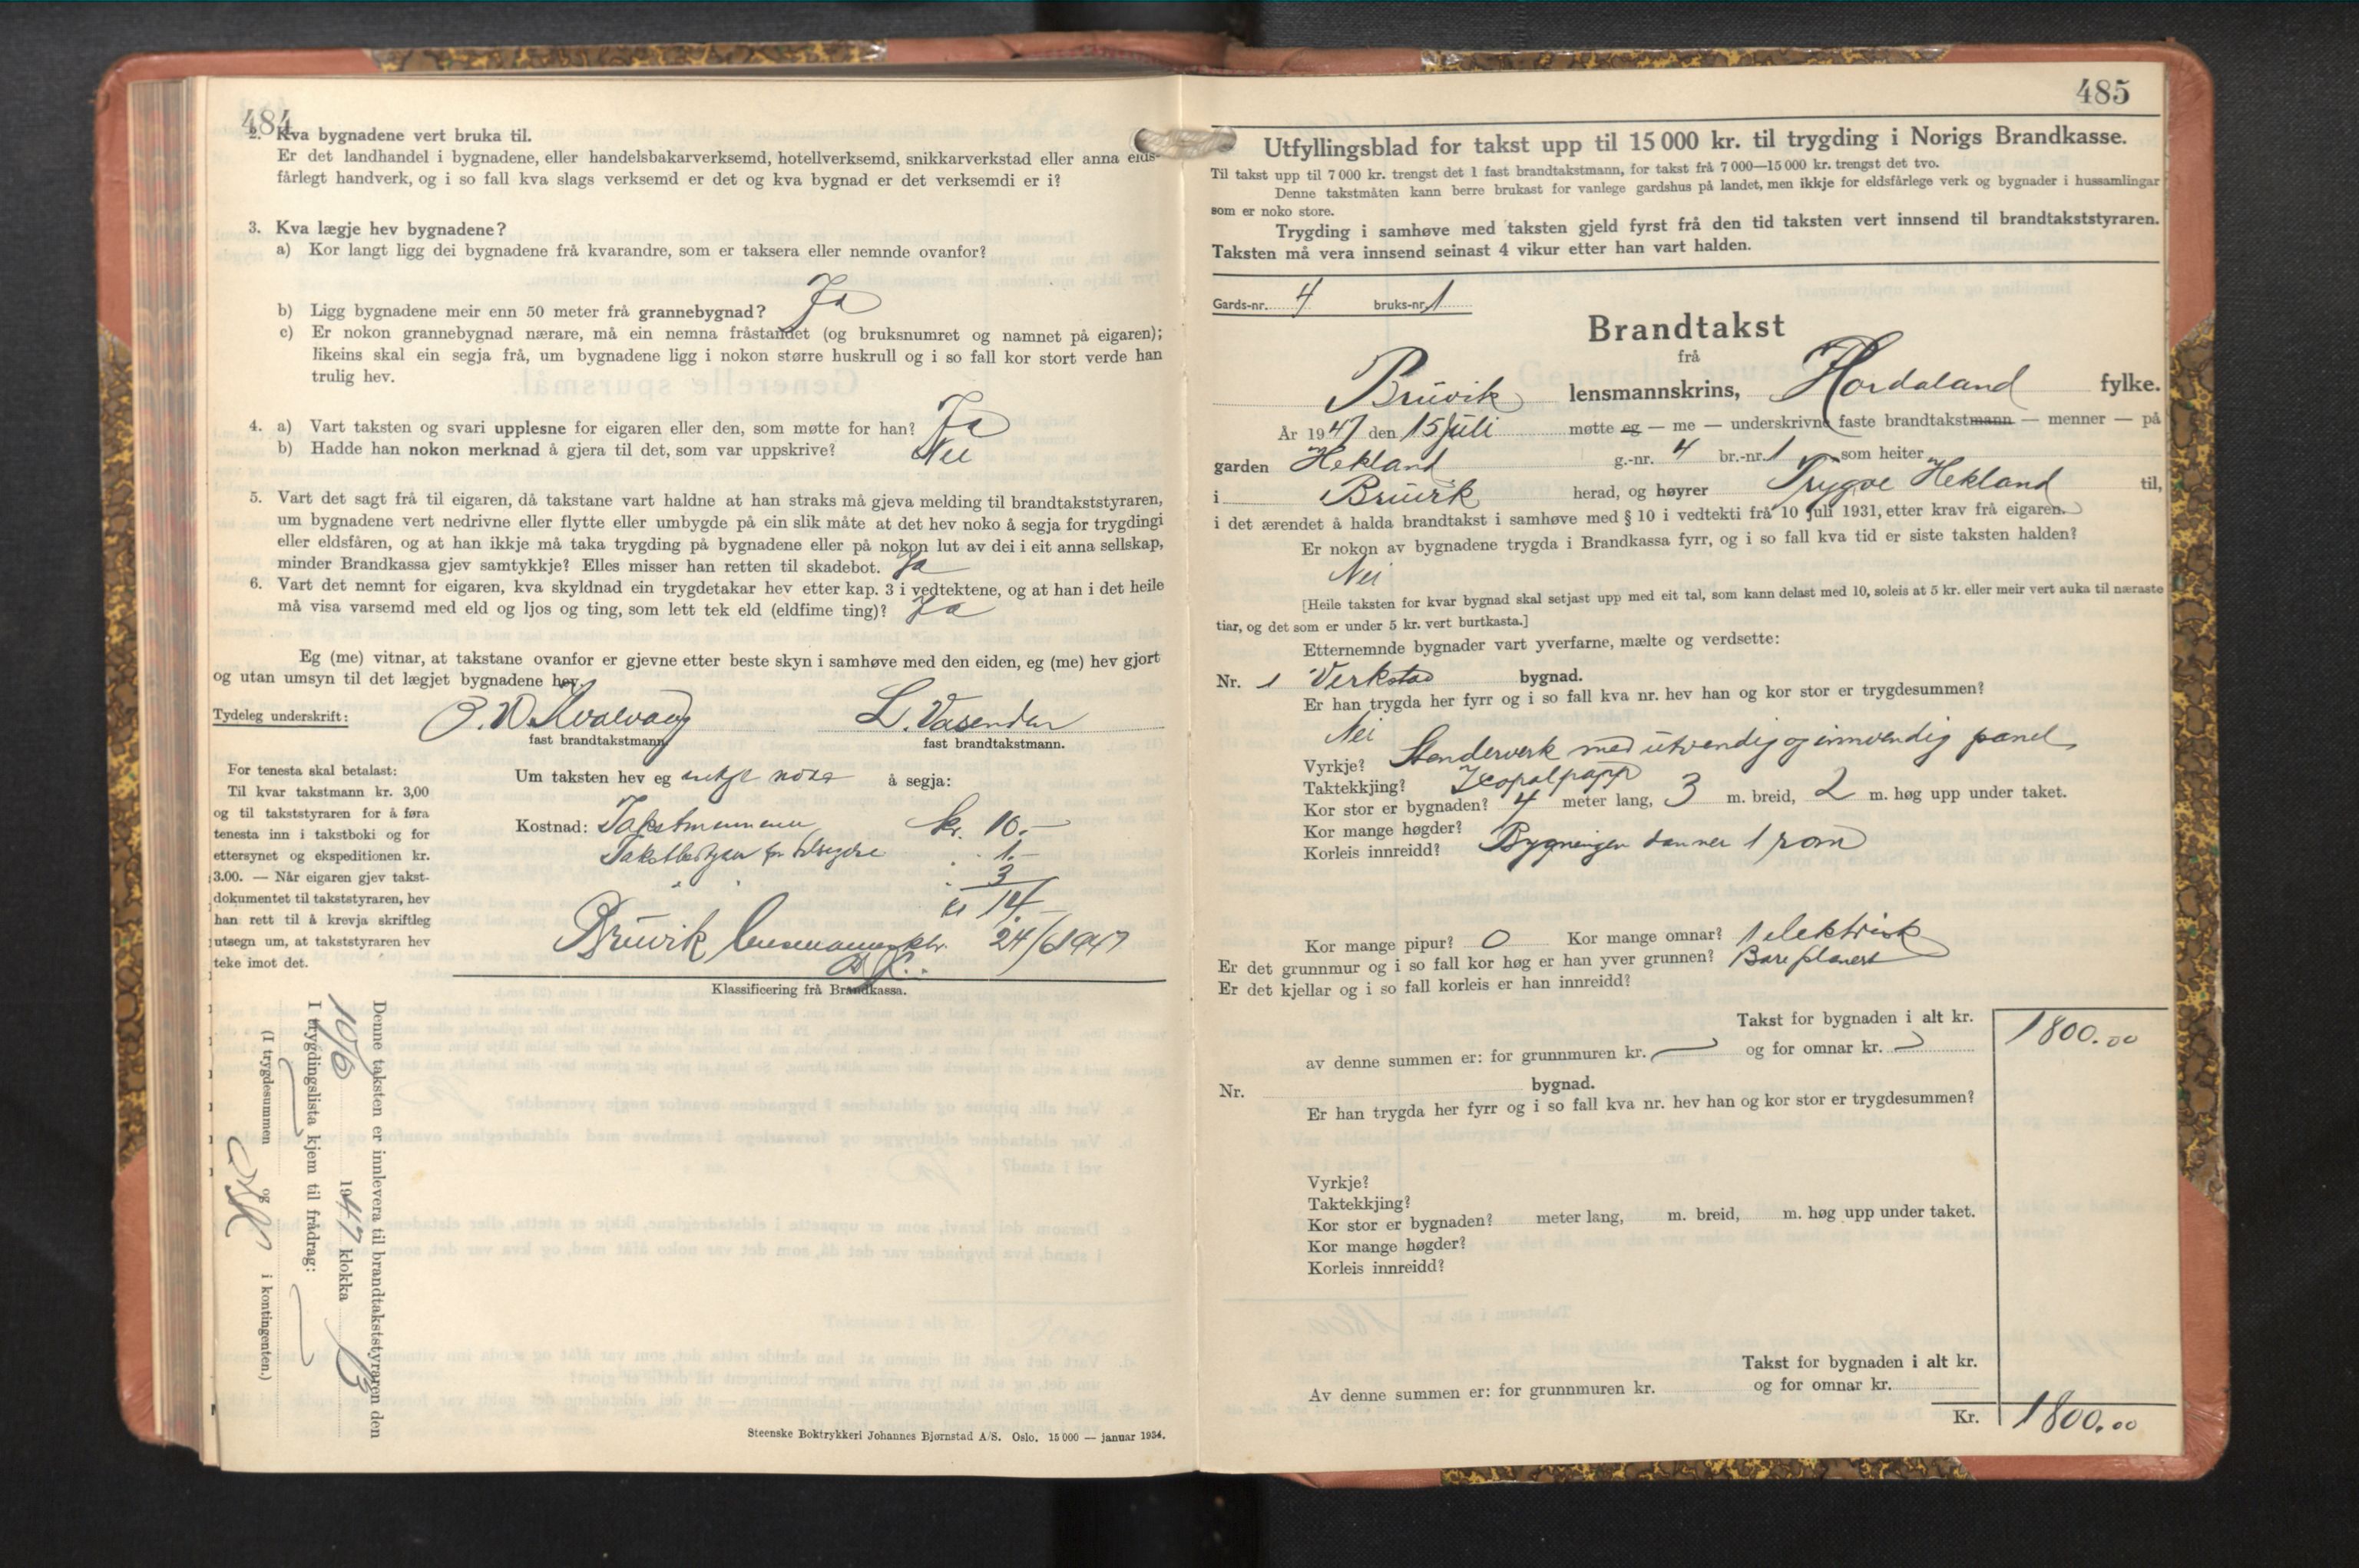 484
2. Kva bygnadene vert bruka til.
Er det landhandel i bygnadene, eller handelsbakarverksemd, hotellverksemd, snikkarverkstad eller anna elds-
fårlegt handverk, og i so fall kva slags verksemd er det og kva bygnad er det verksemdi er i?
3. Kva lægje hev bygnadene?
a) Kor langt ligg dei bygnadene frå kvarandre, som er taksera eller nemnde ovanfor?
b) Ligg bygnadene meir enn 50 meter frå grannebygnad? Ja
c) Er nokon grannebygnad nærare, må ein nemna fråstandet (og bruksnumret og namnet på eigaren);
likeins skal ein segja frå, um bygnadene ligg i nokon større huskrull og i so fall kor stort verde han
trulig hev.
4. a) Vart taksten og svari upplesne for eigaren eller den, som møtte for han? Ja
b) Hadde han nokon merknad å gjera til det, som var uppskrive? Nei
5. Vart det sagt frå til eigaren, då takstane vart haldne at han straks må gjeva melding til brandtakststyraren,
um bygnadene vert nedrivne eller flytte eller umbygde på ein slik måte at det hev noko å segja for trygdingi
eller eldsfåren, og at han ikkje må taka trygding på bygnadene eller på nokon lut av dei i eit anna sellskap,
minder Brandkassa gjev samtykkje? Elles misser han retten til skadebot. Ja
6. Vart det nemnt for eigaren, kva skyldnad ein trygdetakar hev etter kap. 3 i vedtektene, og at han i det heile
må visa varsemd med eld og ljos og ting, som lett tek eld (eldfime ting)? Ja
Eg (me) vitnar, at takstane ovanfor er gjevne etter beste skyn i samhøve med den eiden, eg (me) hev gjort
og utan umsyn til det lægjet bygnadene hev.
Tydeleg underskrift: Kvalvaag L. Vasenden
fast brandtakstmann. fast brandtakstmann.
For tenesta skal betalast:
Til kvar takstmann kr. 3,00
og til takststyraren for å føra
tenesta inn i takstboki og for
ettersynet og ekspeditionen kr.
3.00. — Når eigaren gjev takst-
dokumentet til takststyraren, hev
han rett til å krevja skriftleg
utsegn um, at takststyraren hev
teke imot det.
Um taksten hev eg å segja:
Kostnad: Takstmennene kr. 10.-
1.-
3
14.-
Bruvik 24/6 1947
Klassificering frå Brandkassa.
Denne taksten er innlevera til brandtakststyraren den
10/6 1947 klokka 13
I trygdingslista kjem til frådrag:
(I trygdesummen og i kontingenten.)
Steenske Boktrykkeri Johannes Bjørnstad A/S. Oslo. 15 000 — januar 1934.
485
Utfyllingsblad for takst upp til 15 000 kr. til trygding i Norigs Brandkasse.
Til takst upp til 7 000 kr. trengst det 1 fast brandtakstmann, for takst frå 7 000—15 000 kr. trengst det tvo.
Denne takstmåten kann berre brukast for vanlege gardshus på landet, men ikkje for eldsfårlege verk og bygnader i hussamlingar
som er noko store.
Trygding i samhøve med taksten gjeld fyrst frå den tid taksten vert innsend til brandtakststyraren.
Taksten må vera innsend seinast 4 vikur etter han vart halden.
Gards-nr. 4 bruks-nr. 1
Brandtakst
frå
Bruvik lensmannskrins, Hordaland fylke.
År 1947 den 15 juli møtte eg — me — underskrivne faste brandtakstmann — menner — på
garden Hekland g.-nr. 4 br.-nr. 1 som heiter
i Bruvik herad, og høyrer Trygve Hekland til,
i det ærendet å halda brandtakst i samhøve med § 10 i vedtekti frå 10 juli 1931, etter krav frå eigaren.
Er nokon av bygnadene trygda i Brandkassa fyrr, og i so fall kva tid er siste taksten halden?
Nei
[Heile taksten for kvar bygnad skal setjast upp med eit tal, som kann delast med 10, soleis at 5 kr. eller meir vert auka til næraste
tiar, og det som er under 5 kr. vert burtkasta.]
Etternemnde bygnader vart yverfarne, mælte og verdsette:
Nr. 1 Verkstad bygnad.
Er han trygda her fyrr og i so fall kva nr. hev han og kor stor er trygdesummen?
Nei
Vyrkje? Stenderverk med utvendig og innvendig panel
Taktekkjing? Icopalpapp
Kor stor er bygnaden? 4 meter lang, 3 m. breid, 2 m. høg upp under taket.
Kor mange høgder?
Korleis innreidd? Bygningen danner 1 rom
Kor mange pipur? 0 Kor mange omnar? 1 elektrisk
Er det grunnmur og i so fall kor høg er han yver grunnen? Bare planert
Er det kjellar og i so fall korleis er han innreidd?
Takst for bygnaden i alt kr. 1800.00
av denne summen er: for grunnmuren kr. og for omnar kr.
Nr. bygnad.
Er han trygda her fyrr og i so fall kva nr. hev han og kor stor er trygdesummen?
Vyrkje?
Taktekkjing?
Kor stor er bygnaden? meter lang, m. breid, m. høg upp under taket.
Kor mange høgder?
Korleis innreidd?
Takst for bygnaden i alt kr.
Av denne summen er: for grunnmuren kr. og for omnar kr.
Kr. 1800.00